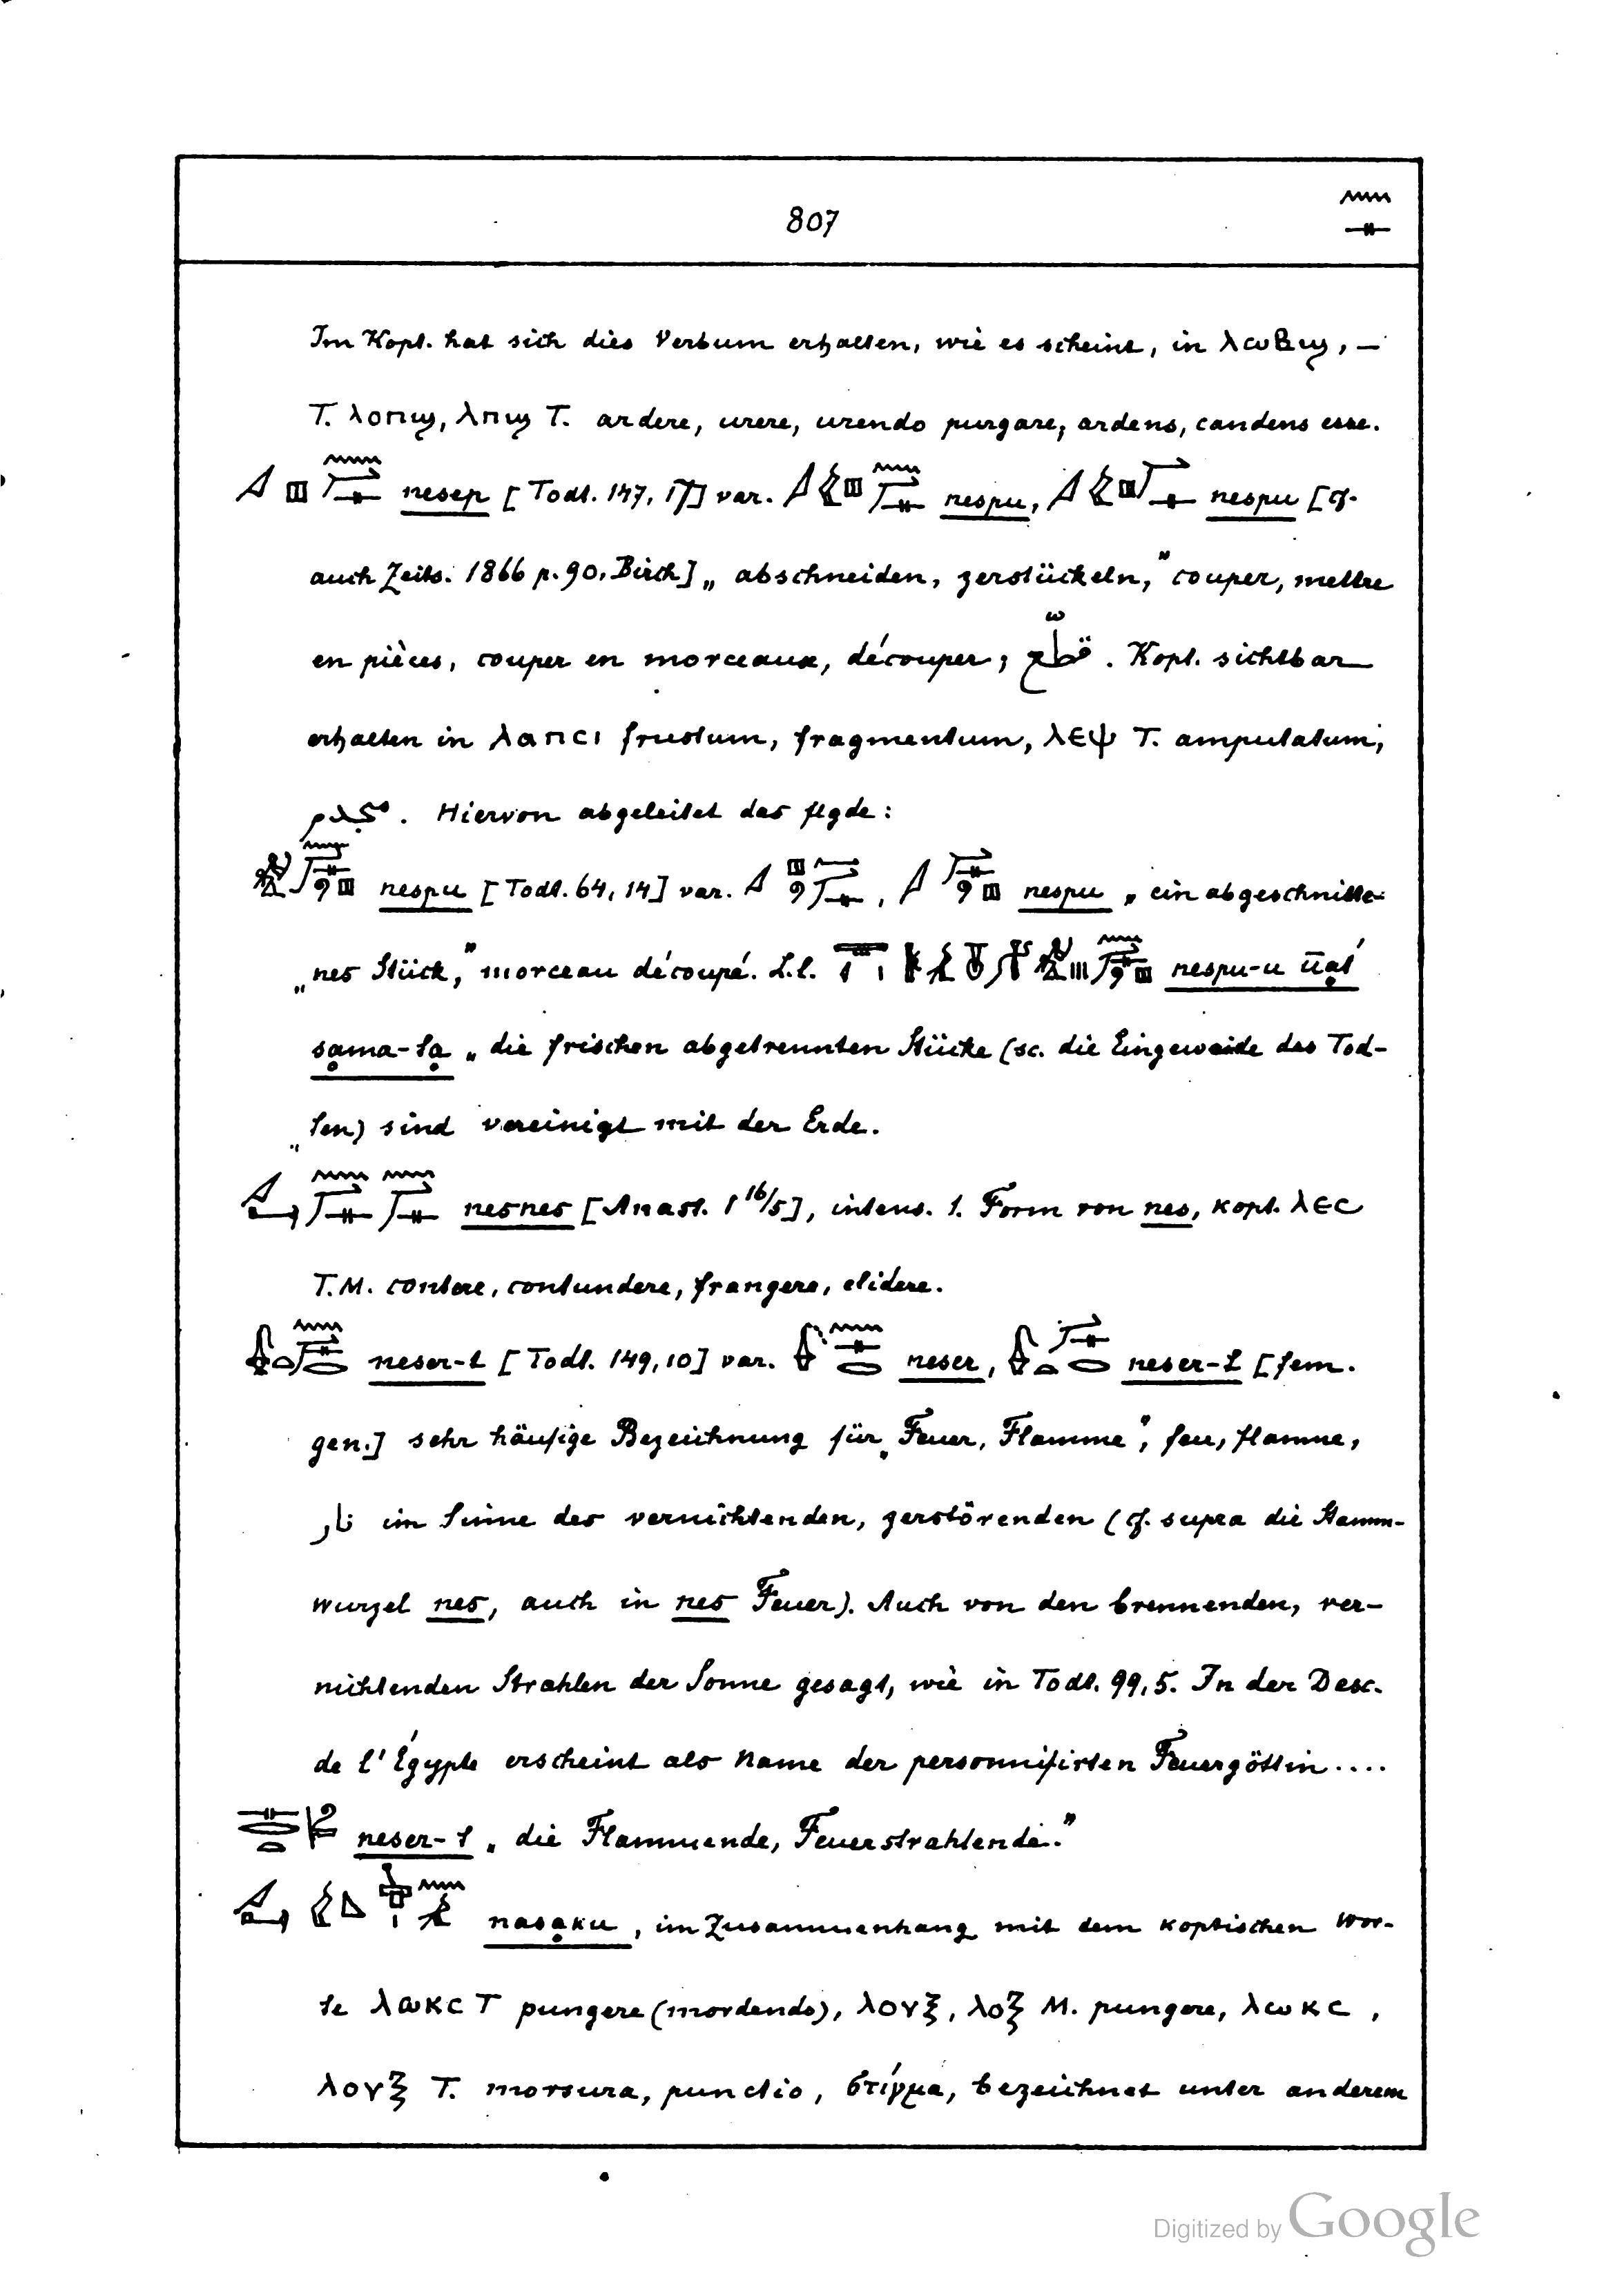 807
Im Kopt. hat sich dies Verbum erhalten, wie es scheint, in ⲗⲱⲃϣ, –
T. ⲗⲟⲡϣ, ⲗⲡϣ T. ardere, urere, urendo purgare, ardens, candens esse.
nesep [Todt. 147, 17] var. nespu, nespu [cf.
auch Zeits. 1866 p. 90. Birch] „ abschneiden, zerstückeln,” couper, mettre
en pièces, couper en morceaux, découper, قطع. Kopt. sichtbar
erhalten in ⲗⲁⲡⲥⲓ frustum, fragmentum, ⲗⲉ⯙ T. amputatum,
Hiervon abgeleitet das flgde:
nespu [Todt. 64, 14] var. , nespu „ ein abgeschnitte-
„nes Stück,” morceau découpé. L.l. nespu-u
sạma-tạ „ die frischen abgetrennten Stücke (sc. die Eingeweide des Tod-
„ten) sind vereinigt mit der Erde.
nesnes [Anast. 1 16/5], intens. 1. Form von nes, kopt. ⲗⲉⲥ
T.M. contere, contundere, frangere, elidere.
neser-t [Todt. 149, 10] var. neser, neser-t [fem.
gen.] sehr häufige Bezeichnung für „Feuer, Flamme”, feu, flamme,
نار im Sinne des vernichtenden, zerstörenden (cf. supra die Stamm-
wurzel nes, auch in nes Feuer). Auch von den brennenden, ver-
nichtenden Strahlen der Sonne gesagt, wie in Todt. 99, 5. In der Desc.
de l'Égypte erscheint als Name der personnifirten Feuergöttin....
neser-t „ die Flammende, Feuerstrahlende.”
nasạku, im Zusammenhang mit dem koptischen Wor-
te ⲗⲱⲕⲥ T pungere (mordendo), ⲗⲟⲩⲝ, ⲗⲟⲝ M. pungere, ⲗⲱⲕⲥ,
ⲗⲟⲩⲝ T. morsura, punctio, στίγμα, bezeichnet unter anderem
Digitized by Google